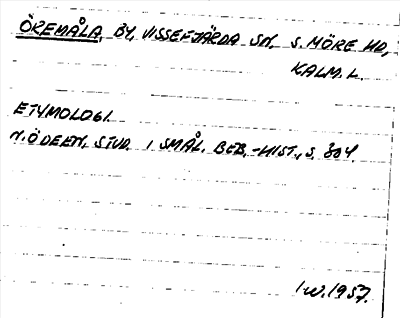 ÖREMÅLA, BY, VISSEFJÄRDA SN, S. MÖRE HD,
KALM. L.
ETYMOLOGI.
N. ÖDEEN, STUD. I SMÅL. BEB.-HIST., S. 304.
I-W. 1957.